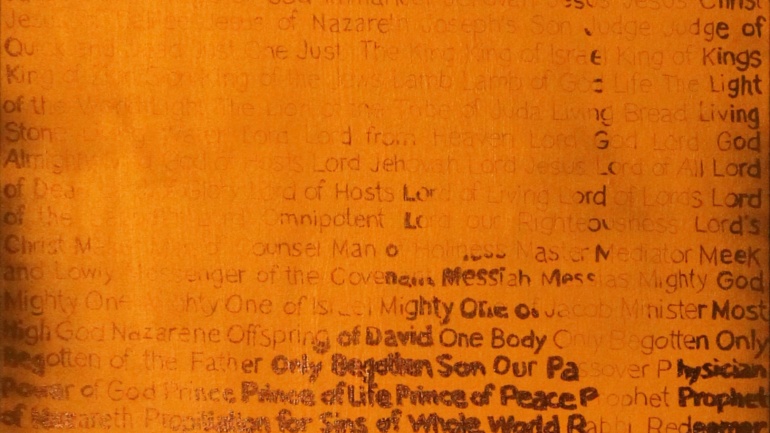 God Immanuel Jehovah Jesus Jesus Christ
Jesus of Nazareth Joseph's Son Judge Judge of
Quick and Dead Just One Just The King King of Israel King of Kings
King of Zion King of the Jews Lamb Lamb of God Life The Light
of the World Light The Lion of the Tribe of Juda Living Bread Living
Stone Lord Lord from Heaven Lord God Lord God
Almighty God of Hosts Lord Jehovah Lord Jesus Lord of All Lord
of Dead of Glory Lord of Hosts Lord of Living Lord of Lords Lord
of the Omnipotent Lord our Righteousness Lord's
Christ Counsel Man of Holiness Master Mediator Meek
and Lowly Messenger of the Covenant Messiah Messias Mighty God
Mighty One Mighty One of Israel Mighty One of Jacob Minister Most
High God Nazarene Offspring of David One Body Only Begotten Only
Begotten of the Father Only Begotten Son Our Passover Physician
Power of God Prince Prince of Life Prince of Peace Prophet Prophet
of Nazareth Propitiation for Sins of Whole World Rabbi Redeemer